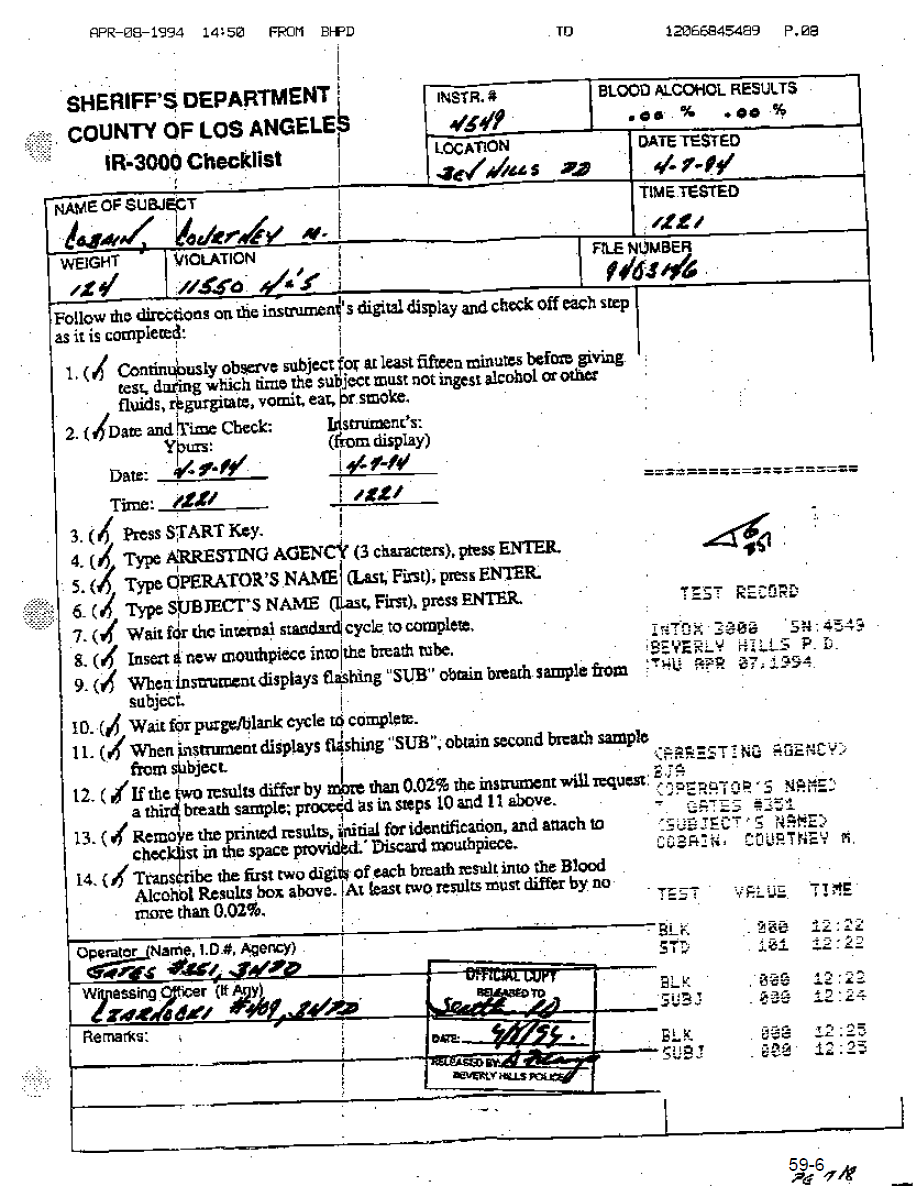 APR-08-1994 14:50 FROM BHPD TO 12066845489 P.08
SHERIFF'S DEPARTMENT
COUNTY OF LOS ANGELES
IR-3000 Checklist
INSTR. #
4549
BLOOD ALCOHOL RESULTS
.00 % .00 %
LOCATION
BEV HILLS PD
DATE TESTED
4-7-94
NAME OF SUBJECT
COBAIN, COURTNEY M.
TIME TESTED
1221
WEIGHT
124
VIOLATION
11550 H&S
FILE NUMBER
9403146
Follow the directions on the instrument's digital display and check off each step
as it is completed:
1. (✓) Continuously observe subject for at least fifteen minutes before giving
test, during which time the subject must not ingest alcohol or other
fluids, regurgitate, vomit, eat, or smoke.
2. (✓) Date and Time Check: Instrument's:
Yours: (from display)
Date: 4-7-94 4-7-94
Time: 1221 1221
====================
3. (✓) Press START Key.
4. (✓) Type ARRESTING AGENCY (3 characters), press ENTER.
5. (✓) Type OPERATOR'S NAME (Last, First), press ENTER.
6. (✓) Type SUBJECT'S NAME (Last, First), press ENTER.
7. (✓) Wait for the internal standard cycle to complete.
8. (✓) Insert a new mouthpiece into the breath tube.
9. (✓) When instrument displays flashing "SUB" obtain breath sample from
subject.
10. (✓) Wait for purge/blank cycle to complete.
11. (✓) When instrument displays flashing "SUB", obtain second breath sample
from subject.
12. (✓) If the two results differ by more than 0.02% the instrument will request
a third breath sample; proceed as in steps 10 and 11 above.
13. (✓) Remove the printed results, initial for identification, and attach to
checklist in the space provided. Discard mouthpiece.
14. (✓) Transcribe the first two digits of each breath result into the Blood
Alcohol Results box above. At least two results must differ by no
more than 0.02%.
351
TEST RECORD
INTOX 3000 SN:4549
BEVERLY HILLS P.D.
THU APR 07,1994
(ARRESTING AGENCY)
(OPERATOR'S NAME)
GATES #351
(SUBJECT'S NAME)
COBAIN, COURTNEY M.
TEST VALUE TIME
BLK .000 12:22
STD .101 12:22
BLK .000 12:23
SUBJ .000 12:24
BLK .000 12:25
SUBJ .000 12:25
Operator (Name, I.D.#, Agency)
GATES #351, BHPD
Witnessing Officer (If Any)
CZARNOCKI #409, BHPD
Remarks:
OFFICIAL COPY
RELEASED TO
Seattle PD
DATE: 4/8/94
RELEASED BY:
BEVERLY HILLS POLICE
59-6
PG 7/8